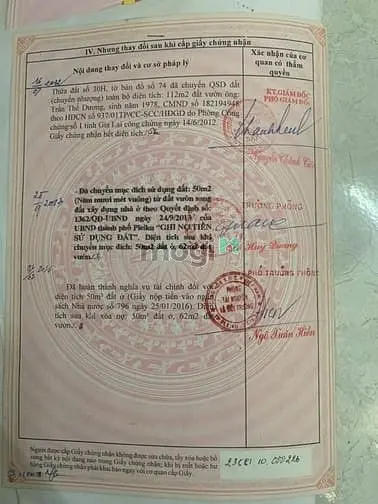 IV. Những thay đổi sau khi cấp giấy chứng nhận
Nội dung thay đổi và cơ sở pháp lý
Xác nhận của cơ
quan có thẩm
quyền
Thửa đất số 30H, tờ bản đồ số 74 đã chuyển QSD đất
(chuyển nhượng) toàn bộ diện tích: 112m2 đất vườn ông:
Trần Thế Dương, sinh năm 1978, CMND số 182194948
theo HĐCN số 937/01TP/CC-SCC/HĐGD do Phòng Công
chứng số 1 tỉnh Gia Lai công chứng ngày 14/6/2012.
Giấy chứng nhận hết diện tích
KT.GIÁM ĐỐC
PHÓ GIÁM ĐỐC
- Đã chuyển mục đích sử dụng đất: 50m2
(Năm mươi mét vuông) từ đất vườn sang
đất xây dựng nhà ở theo Quyết định số:
1362/QĐ-UBND ngày 24/9/2013 của
UBND thành phố Pleiku "GHI NỢ TIỀN
SỬ DỤNG ĐẤT". Diện tích sau khi
chuyển mục đích: 50m2 đất ở, 62m2 đất
vườn.
TRƯỞNG PHÒNG
mogi
Đã hoàn thành nghĩa vụ tài chính đối với
diện tích 50m2 đất ở (Giấy nộp tiền vào ngân
sách Nhà nước số 796 ngày 25/01/2016). Diện
tích sau khi xóa nợ: 50m2 đất ở, 62m2 đất
vườn.
PHÓ TRƯỞNG PHÒNG
PHÒNG
TÀI NGUYÊN
VÀ MÔI TRƯỜNG
Ngô Xuân Hiền
Người được cấp Giấy chứng nhận không được sửa chữa, tẩy xóa hoặc bổ
sung bất kỳ nội dung nào trong Giấy chứng nhận; khi bị mất hoặc hư
hỏng Giấy chứng nhận phải khai báo ngay với cơ quan cấp Giấy.